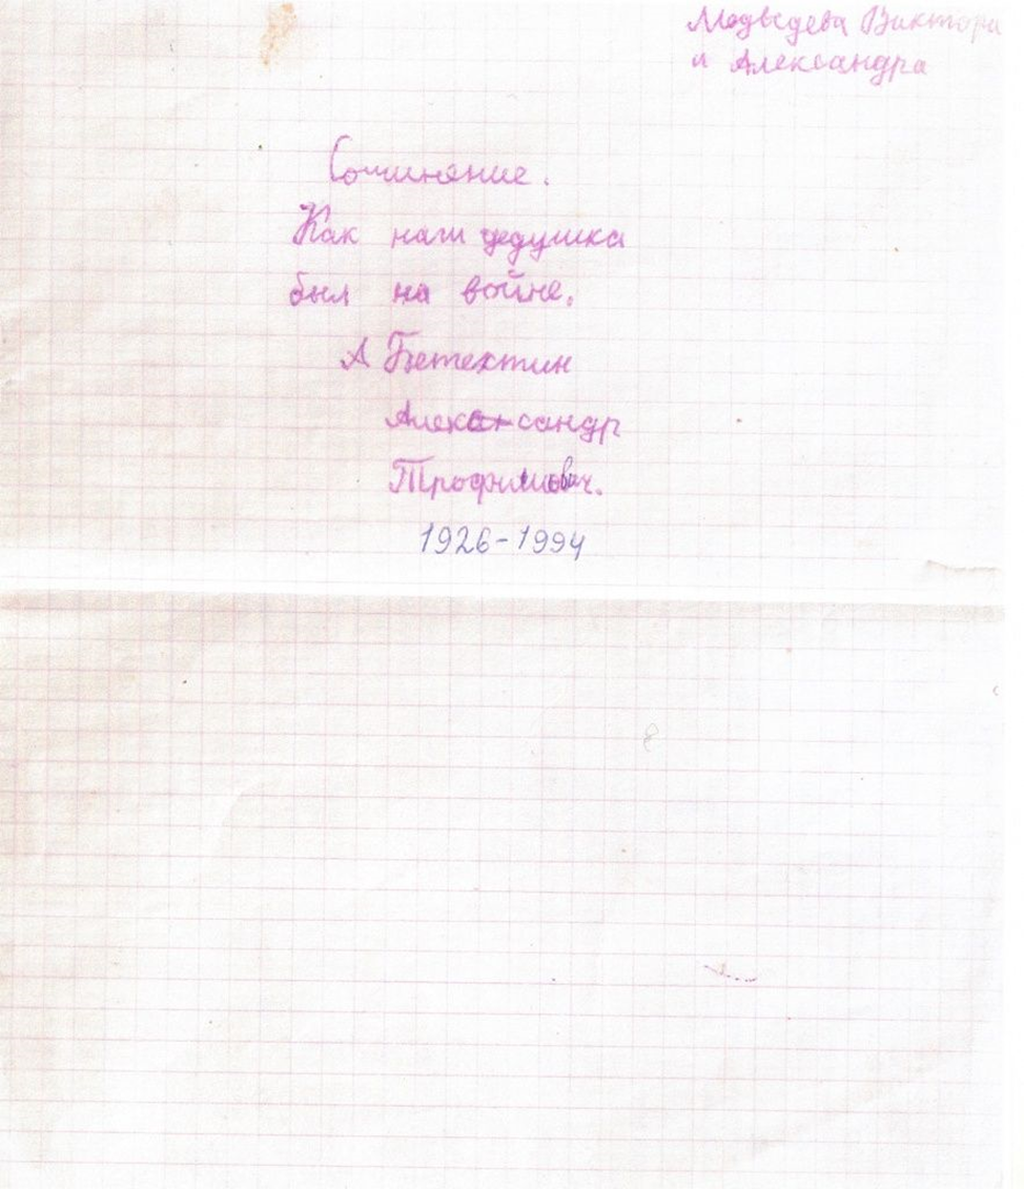 Медведева Виктора
и Александра
Сочиняние.
Как наш дедушка
был на войне.
А Бетехтин
Александр
Трофимович.
1926-1994
8